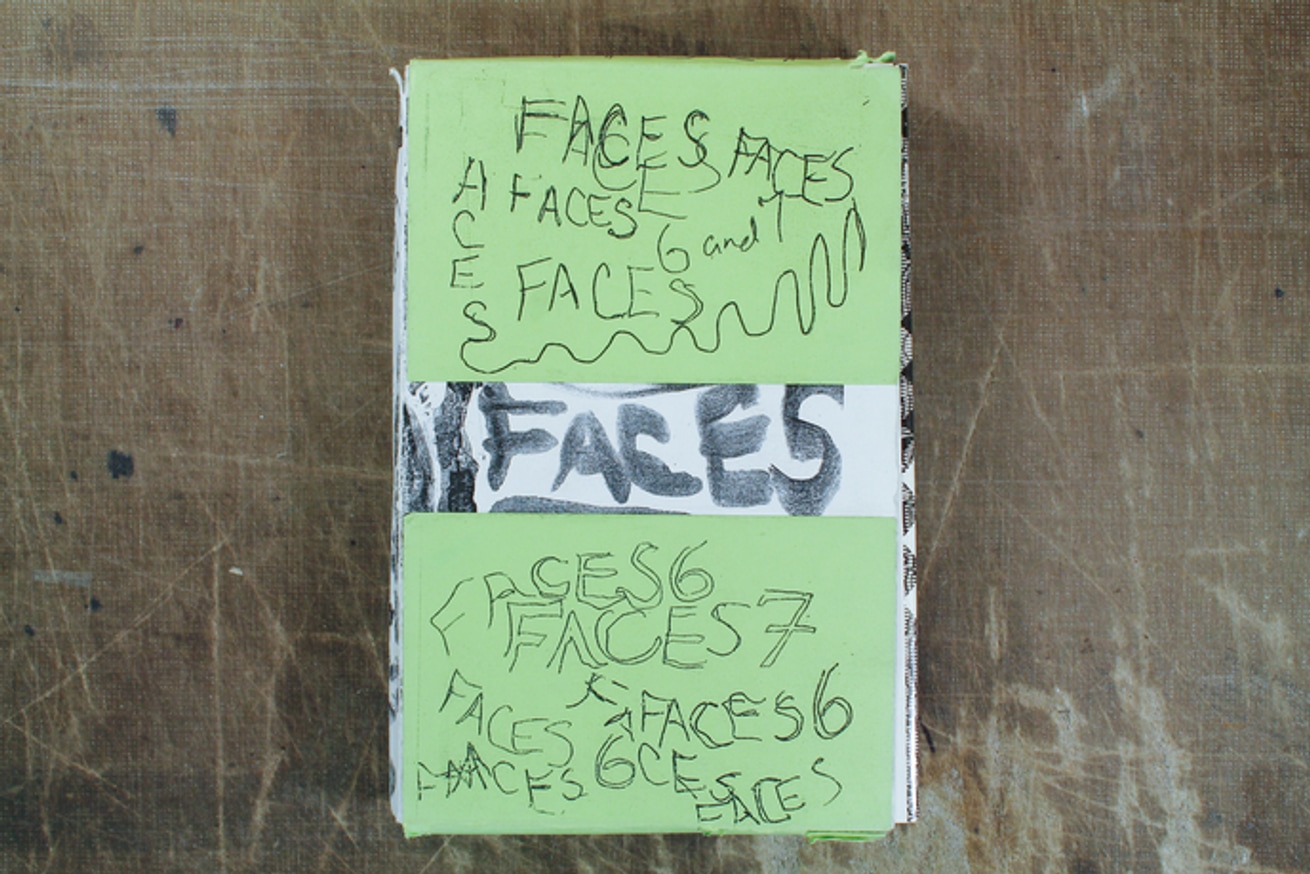 FACES
FACES
ACES
FACES
6 and 7
FACES
FACES
FACES6
FACES7
FACES
FACES6
FACES
6CES
FACES